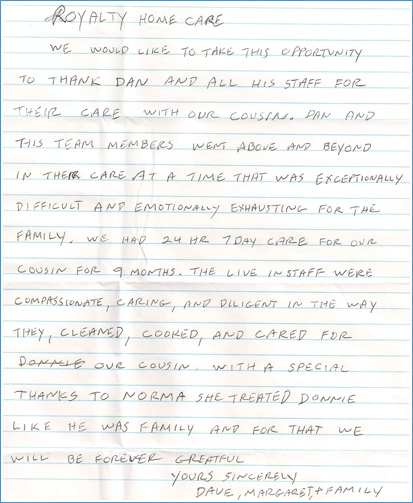 ROYALTY HOME CARE
WE WOULD LIKE TO TAKE THIS OPPORTUNITY
TO THANK DAN AND ALL HIS STAFF FOR
THEIR CARE WITH OUR COUSIN. DAN AND
THIS TEAM MEMBERS WENT ABOVE AND BEYOND
IN THEIR CARE AT A TIME THAT WAS EXCEPTIONALLY
DIFFICULT AND EMOTIONALLY EXHAUSTING FOR THE
FAMILY. WE HAD 24 HR 7 DAY CARE FOR OUR
COUSIN FOR 9 MONTHS. THE LIVE IN STAFF WERE
COMPASSIONATE, CARING, AND DILIGENT IN THE WAY
THEY, CLEANED, COOKED, AND CARED FOR
DONNIE OUR COUSIN. WITH A SPECIAL
THANKS TO NORMA SHE TREATED DONNIE
LIKE HE WAS FAMILY AND FOR THAT WE
WILL BE FOREVER GREATFUL
YOURS SINCERELY
DAVE, MARGARET, + FAMILY